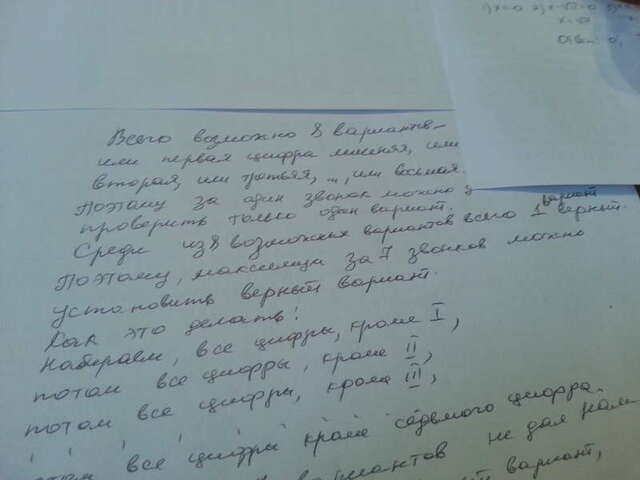 1) x=0
x=
Ответ: 0,
Всего возможно 8 вариантов –
или первая цифра лишняя, или
вторая, или третья, ..., или восьмая.
Поэтому за один звонок можно
проверить только один вариант.
Среди из 8 возможных вариантов всего 1 вариант верный.
Поэтому, максимум за 7 звонков можно
установить верный вариант.
Как это делать!
Набираем, все цифры, кроме I,
потом все цифры, кроме II,
потом все цифры, кроме III,
' ' ' ' '
все цифры кроме седьмого цифра.
вариантов не дал нам
вариант,